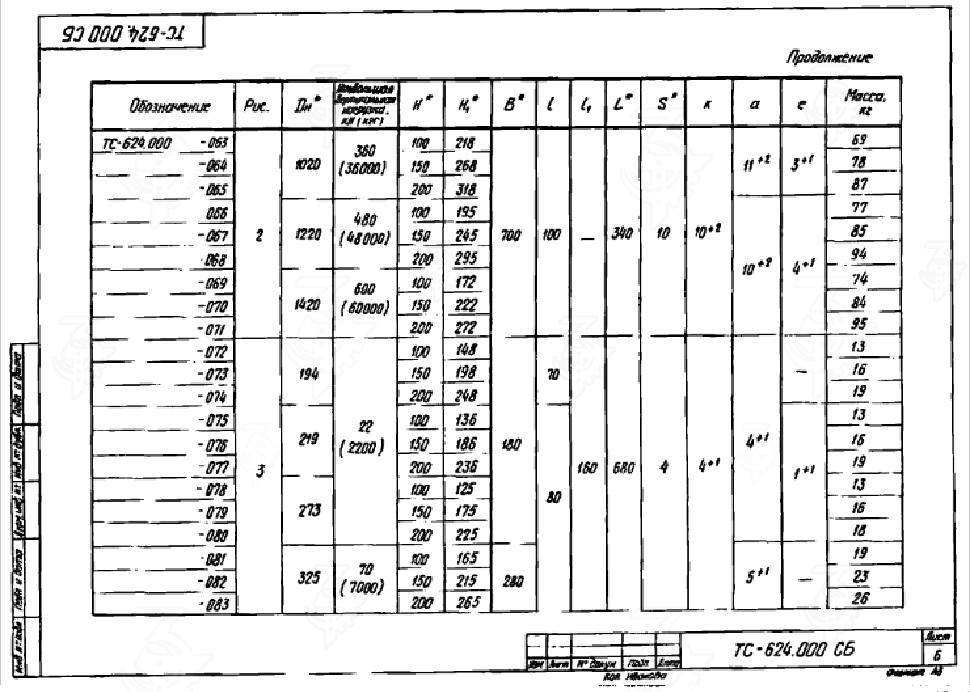 ТС-624.000 СБ
Продолжение
Обозначение Рис. Dн* Наибольшая вертикальная нагрузка, кН (кгс) H* H₁* B* l l₁ L* S* к a e Масса, кг
ТС-624.000 -063 2 1020 360 (36000) 100 218 700 100 — 340 10 10⁺² 11⁺² 3⁺¹ 69
-064 150 268 78
-065 200 318 87
-066 1220 480 (48000) 100 195 10⁺² 4⁺¹ 77
-067 150 245 85
-068 200 295 94
-069 1420 600 (60000) 100 172 74
-070 150 222 84
-071 200 272 95
-072 3 194 22 (2200) 100 148 180 70 160 680 4 4⁺¹ 4⁺¹ — 13
-073 150 198 16
-074 200 248 19
-075 219 100 136 80 1⁺¹ 13
-076 150 186 16
-077 200 236 19
-078 273 100 125 13
-079 150 175 16
-080 200 225 18
-081 325 70 (7000) 100 165 280 5⁺¹ — 19
-082 150 215 23
-083 200 265 26
Подп. и дата
Инв. № дубл.
Взам. инв. №
Подп. и дата
Инв. № подл.
Изм Лист № докум. Подп. Дата
ТС-624.000 СБ
Лист
6
Кол. Иванова
Формат А4